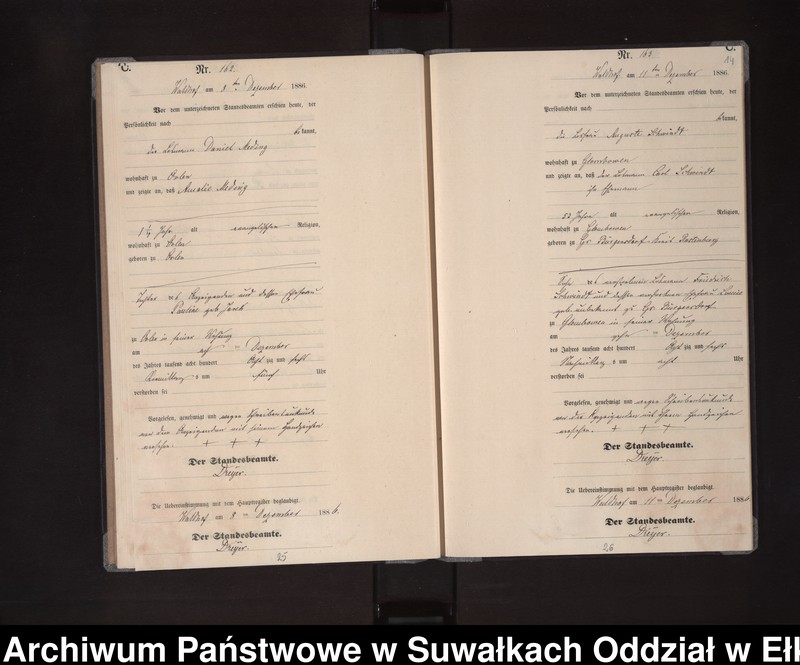 C.
Nr. 162.
Walldorf am 8 ten Dezember 1886.
Vor dem unterzeichneten Standesbeamten erschien heute, der
Persönlichkeit nach
bekannt,
Daniel Meding
wohnhaft zu
und zeigte an, daß Amalie Meding
1 1/4 Jahr alt evangelischer Religion,
wohnhaft zu
geboren zu
Tochter des Anzeigenden und dessen Ehefrau
Pauline geb.
zu in seiner Wohnung
am Dezember
des Jahres tausend acht hundert Acht zig und sechs
Vormittags um fünf Uhr
verstorben sei
Vorgelesen, genehmigt und wegen Schreibensunkunde
von dem Anzeigenden mit seinem Handzeichen
versehen. + + +
Der Standesbeamte.
Dreyer.
Die Uebereinstimmung mit dem Hauptregister beglaubigt.
Walldorf am 8 ten Dezember 1886.
Der Standesbeamte.
Dreyer.
25
C.
14
Nr. 163.
Walldorf am 11 ten Dezember 1886.
Vor dem unterzeichneten Standesbeamten erschien heute, der
Persönlichkeit nach
bekannt,
die Auguste Schwindt
wohnhaft zu Glombowen
und zeigte an, daß der Carl Schwindt
ihr Ehemann
52 Jahre alt evangelischer Religion,
wohnhaft zu Glombowen
geboren zu Gr. Bürgersdorf Kreis Rastenburg
Sohn des verstorbenen Friedrich
Schwindt und dessen verstorbenen Ehefrau Louise
geb. unbekannt zu Gr. Bürgersdorf
zu Glombowen in seiner Wohnung
am Dezember
des Jahres tausend acht hundert Acht zig und sechs
Nachmittags um acht Uhr
verstorben sei
Vorgelesen, genehmigt und wegen Schreibensunkunde
von der Anzeigenden mit ihrem Handzeichen
versehen. + + +
Der Standesbeamte.
Dreyer.
Die Uebereinstimmung mit dem Hauptregister beglaubigt.
Walldorf am 11 ten Dezember 1886.
Der Standesbeamte.
Dreyer.
26
Archiwum Państwowe w Suwałkach Oddział w Ełk